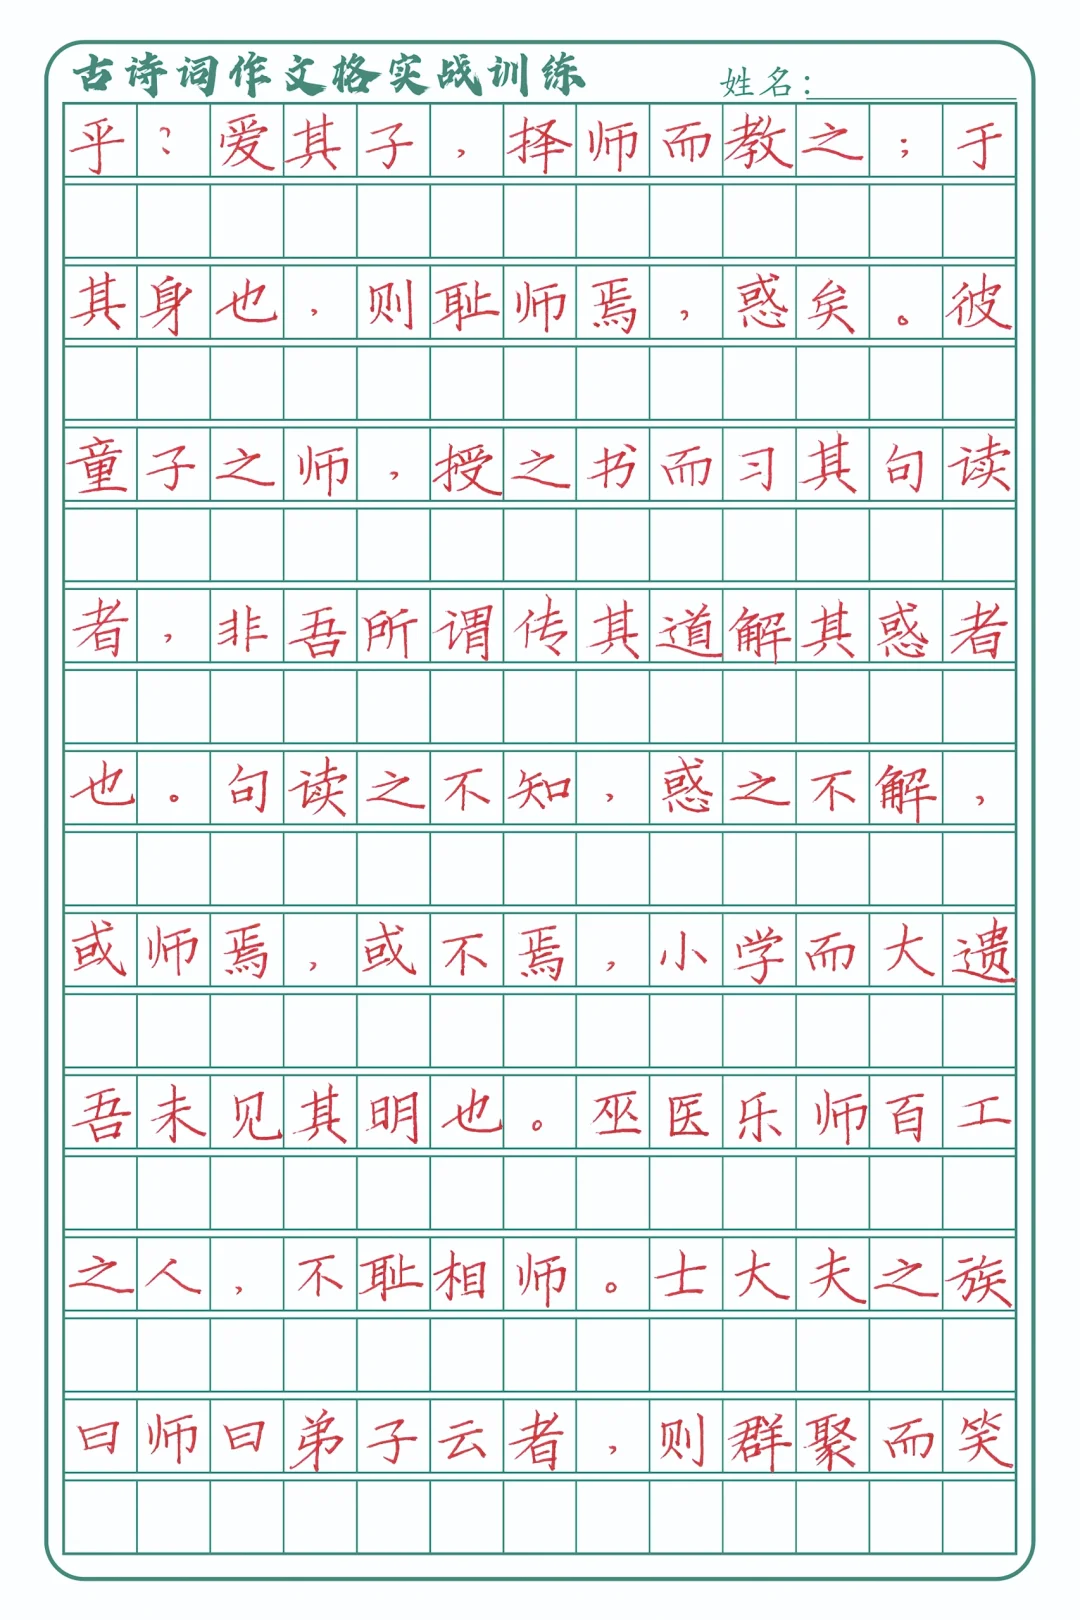 古诗词作文格实战训练
姓名：
乎？爱其子，择师而教之；于
其身也，则耻师焉，惑矣。彼
童子之师，授之书而习其句读
者，非吾所谓传其道解其惑者
也。句读之不知，惑之不解，
或师焉，或不焉，小学而大遗
吾未见其明也。巫医乐师百工
之人，不耻相师。士大夫之族
曰师曰弟子云者，则群聚而笑